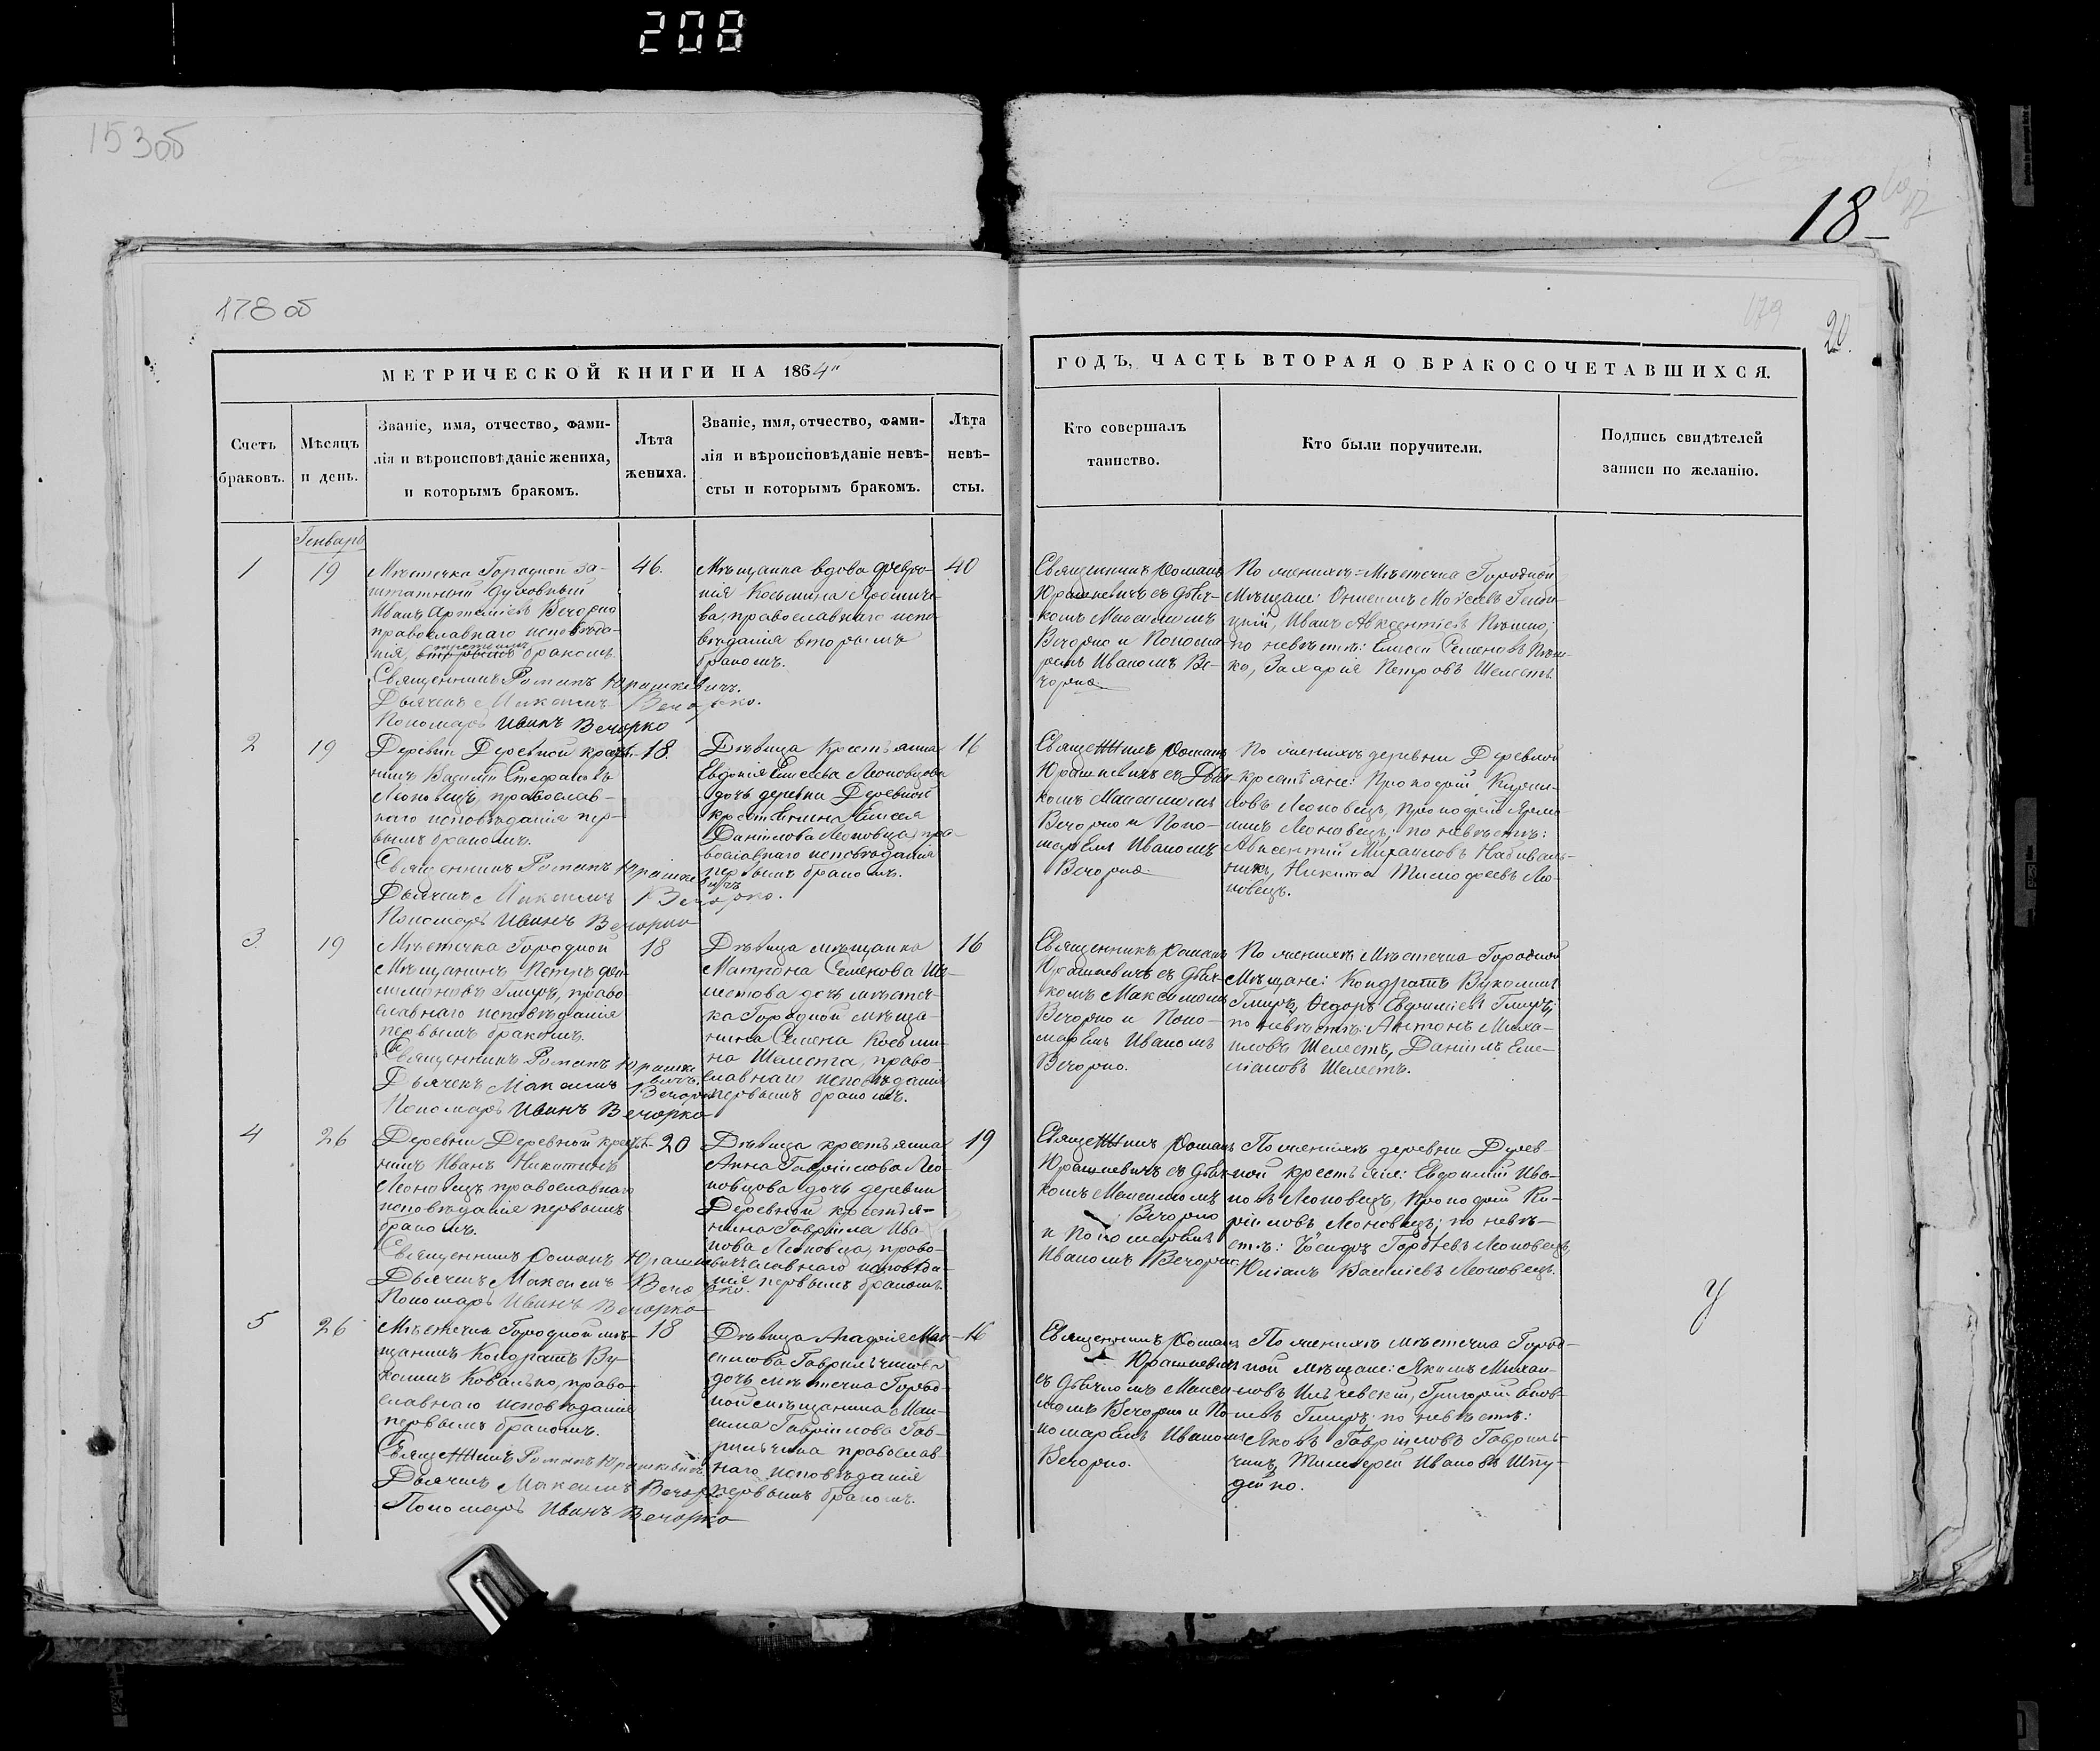 208
153об
18
178 об
179
20.
МЕТРИЧЕСКОЙ КНИГИ НА 1864"
ГОДЪ, ЧАСТЬ ВТОРАЯ О БРАКОСОЧЕТАВШИХСЯ.
Счетъ
браковъ.
Мѣсяцъ
и день.
Званіе, имя, отчество, фами-
лія и вѣроисповѣданіе жениха,
и которымъ бракомъ.
Лѣта
жениха.
Званіе, имя, отчество, фами-
лія и вѣроисповѣданіе невѣ-
сты и которымъ бракомъ.
Лѣта
невѣ-
сты.
Кто совершалъ
таинство.
Кто были поручители.
Подпись свидѣтелей
записи по желанію.
Генварь
1
19
Мѣстечка Городной за-
штатный духовный
Иванъ Артеміевъ Вечорко
православнаго исповѣда-
нія, третьимъ бракомъ.
Священникъ Романъ Юрашкевичъ.
Дьячекъ Максимъ Вечорко.
Пономарь Иванъ Вечорко
46.
Мѣщанка вдова Февро-
нія Косьмина
ва, православнаго испо-
вѣданія вторымъ
бракомъ.
40
Священникъ Романъ
Юрашкевичъ съ дьяч-
комъ Максимомъ
Вечорко и Понома-
ремъ Иваномъ Ве-
чорко.
По женихѣ: Мѣстечка Городной
Мѣщане: Онисимъ Моѵсеевъ
Иванъ Авксентіевъ
по невѣстѣ: Елисей Семеновъ
ко, Захарія Петровъ Шелестъ.
2
19
Деревни Деревной крестья-
нинъ Василій Стефановъ
Леоновецъ, православ-
наго исповѣданія пер-
вымъ бракомъ.
Священникъ Романъ Юрашкевичъ
Дьячекъ Максимъ Вечорко.
Пономарь Иванъ Вечорко
18.
Дѣвица крестьянка
Евдокія Елисеева Леоновцова
дочь деревни Деревной
крестьянина Елисея
Даніилова Леоновца, пра-
вославнаго исповѣданія
первымъ бракомъ.
16
Священникъ Романъ
Юрашкевичъ съ Дьяч-
комъ Максимомъ
Вечорко и Поно-
маремъ Иваномъ
Вечорко.
По женихѣ деревни Деревной
крестьяне: Прокофій Кири-
ловъ Леоновецъ, Прокофій
Леоновецъ; по невѣстѣ:
Авксентій Михаиловъ Набиваль-
никъ, Никита Тимофеевъ Ле-
новецъ.
3.
19
Мѣстечка Городной
Мѣщанинъ Петръ
Гмиръ, право-
славнаго исповѣданія
первымъ бракомъ.
Священникъ Романъ Юрашкевичъ.
Дьячекъ Максимъ Вечорко
Пономарь Иванъ Вечорко
18
Дѣвица мѣщанка
Матрона Семенова Ше-
лестова дочь мѣстеч-
ка Городной мѣща-
нина Семена Косьми-
на Шелеста, право-
славнаго исповѣданія
первымъ бракомъ.
16
Священникъ Романъ
Юрашкевичъ съ дьяч-
комъ Максимомъ
Вечорко и Поно-
маремъ Иваномъ
Вечорко.
По женихѣ Мѣстечка Городной
Мѣщане: Кондратъ Вуколинъ
Гмиръ, Ѳедоръ Евфиміевъ Гмиръ;
по невѣстѣ: Антонъ Миха-
иловъ Шелестъ, Даніилъ Еме-
ліановъ Шелестъ.
4
26
Деревни Деревной крестья-
нинъ Иванъ Никитинъ
Леоновецъ православнаго
исповѣданія первымъ
бракомъ.
Священникъ Романъ Юрашкевичъ
Дьячекъ Максимъ Вечорко.
Пономарь Иванъ Вечорко
20
Дѣвица крестьянка
Анна Гавріилова Лео-
новцова дочь деревни
Деревной крестья-
нина Гавріила Ива-
нова Леоновца, право-
славнаго исповѣда-
нія первымъ бракомъ.
19
Священникъ Романъ
Юрашкевичъ съ дьяч-
комъ Максимомъ
Вечорко
и Пономаремъ
Иваномъ Вечорко.
По женихѣ деревни Дерев-
ной крестьяне: Евфимій Ива-
новъ Леоновецъ, Прокофій Ки-
риловъ Леоновецъ; по невѣ-
стѣ: Леоновецъ,
Юліанъ Василіевъ Леоновецъ.
5
26
Мѣстечка Городной мѣ-
щанинъ Кондратъ Ву-
колинъ Ковалько, право-
славнаго исповѣданія
первымъ бракомъ.
Священникъ Романъ Юрашкевичъ.
Дьячекъ Максимъ Вечорко
Пономарь Иванъ Вечорко
18
Дѣвица Агафія Мак-
симова Гаврильчикова
дочь мѣстечка Город-
ной мѣщанина Мак-
сима Гавріилова Гав-
рильчика православ-
наго исповѣданія
первымъ бракомъ.
16
Священникъ Романъ
Юрашкевичъ
съ дьячкомъ Макси-
момъ Вечорко и По-
номаремъ Иваномъ
Вечорко.
По женихѣ мѣстечка Город-
ной мѣщане: Якимъ Михаи-
ловъ Григорій
Гмиръ; по невѣстѣ:
Яковъ Гавріиловъ Гавриль-
чикъ, Тимоѳей Ивановъ Шпу-
дейко.